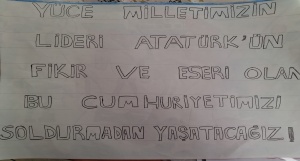 YÜCE MİLLETİMİZİN
LİDERİ ATATÜRK'ÜN
FİKİR VE ESERİ OLAN
BU CUMHURİYETİMİZİ
SOLDURMADAN YAŞATACAĞIZ!